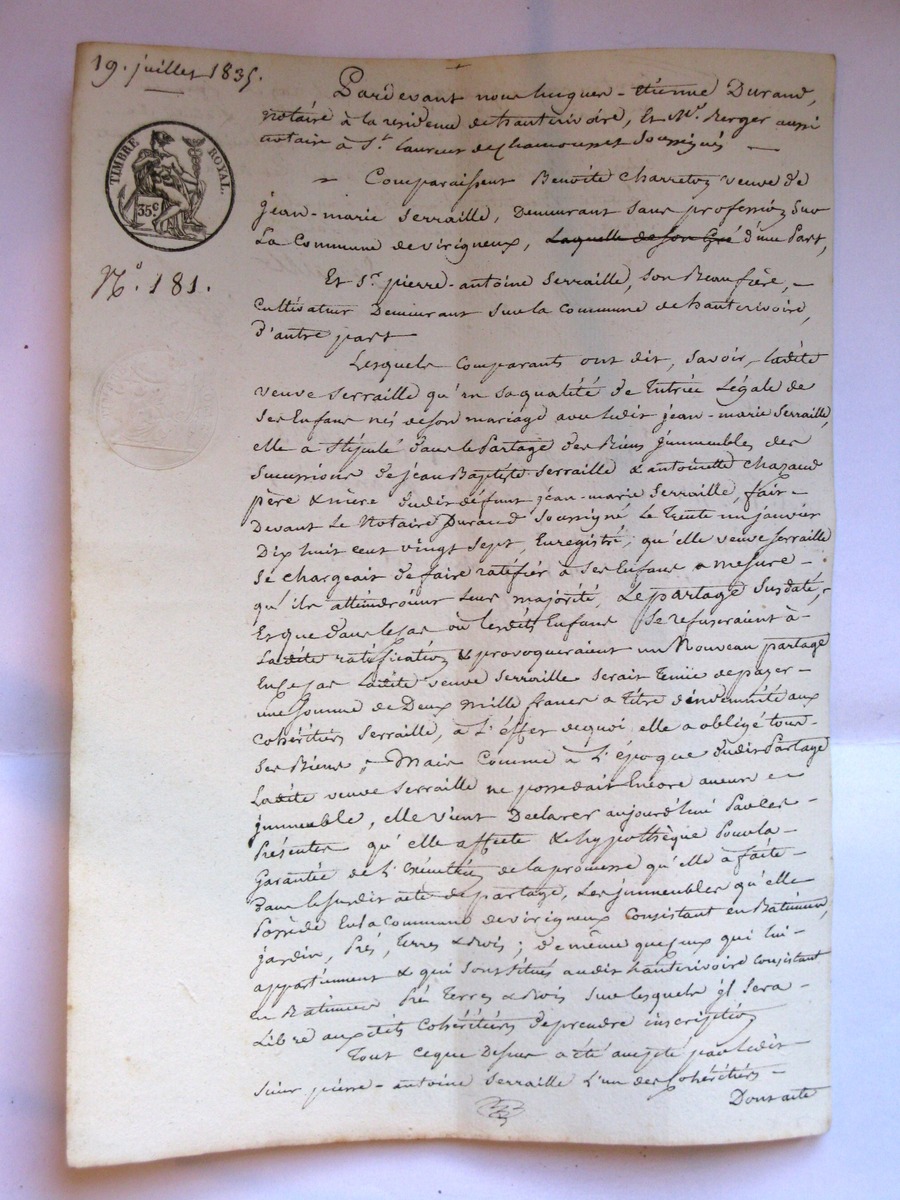 19. juillet 1835.
TIMBRE ROYAL.
35c
N.° 181.
Pardevant nous hugues-étienne Durand,
notaire à la residence de hauterivoire, Et Me. Berger aussi
notaire à St. laurent de Chamousset Soussignés —
Comparaissent Benoite Charretoz veuve de
jean-marie Serraille, Demeurant Sans profession Sur
La Commune de virigneux, Laquelle de Son Gré d'une Part,
Et Sr. pierre-antoine Serraille, Son Beau frère, —
Cultivateur Demeurant Sur la Commune de hauterivoire,
D'autre part
Lesquels Comparants ont dit, Savoir, ladite
veuve Serraille qu'en Sa qualité de Tutrice Légale de
Ses Enfans nés de Son mariage avec ledit jean-marie Serraille,
elle a Stipulé dans le Partage des Biens jmmeubles des
Successions de jean Baptiste Serraille & antoinette Chazaud
père & mère dudit défunt jean-marie Serraille, fait —
Devant Le Notaire Durand Soussigné Le Trente un janvier
Dix huit cent vingt Sept, Enregistré; qu'elle veuve Serraille
Se Chargeait de faire ratifier à Ses Enfans a mesure —
qu'ils atteindroient leur majorité, Le partage Susdaté, —
Et que dans le Cas où lesdits Enfans Se refuseraient à —
Ladite ratification & provoqueraient un Nouveau partage
En Ce Cas Ladite veuve Serraille Serait Tenüe de payer —
une Somme de Deux mille francs a titre d'indemnité aux
Cohéritiers Serraille, à L'effet de quoi elle a obligé tous —
Ses Biens; Mais Comme à L'époque dudit Partage
Ladite veuve Serraille ne possedait Encore aucun —
jmmeuble, elle vient Declarer aujourd'hui Par les —
Présentes qu'elle affecte & hypothèque Pour la —
Garantie de L'Exécution de la promesse qu'elle a faite —
Dans le Susdit acte de partage, Les jmmeubles qu'elle
Possède En la Commune de virigneux Consistant en Batimens,
jardin, Prés, Terres & Bois; de même que Ceux qui lui —
appartiennent & qui Sont Situés audit hauterivoire Consistant
en Batimens Pré Terres & Bois Sur lesquels jl Sera —
Libre auxdits Cohéritiers de prendre inscription
Tout Ce que Dessus a été accepté par ledit —
Sieur pierre-antoine Serraille L'un des Cohéritiers —
Dont acte